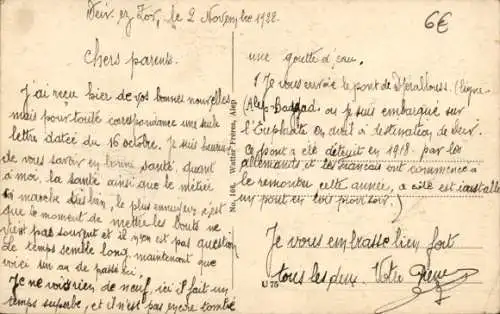 Deir ez Zor, le 2 Novembre 1922.
6€
Chers parents.
J'ai reçu hier de vos bonnes nouvelles
mais pour toute correspondance une seule
lettre datée du 16 octobre. Je suis heureux
de vous savoir en bonne santé, quant
à moi, la santé ainsi que le métier
marche très bien, le plus ennuyeux c'est
que le moment de mettre les bouts ne
vient pas souvent et il n'en est pas question
le temps semble long maintenant que
voici un an de passé ici.
Je ne vois rien de neuf, ici il fait un
temps superbe, et il n'est pas encore tombé
No. 108. Wattar Frères, Alep
U 75
une goutte d'eau.
Je vous envoie le pont de (ligne
Alep-Bagdad, où je suis embarqué sur
l'Euphrate en doit à destination de Deir.
Ce pont a été détruit en 1918 par les
allemands et les français ont commencé à
le remonter cette année, a côté est installé
un pont en bois provisoir.)
Je vous embrasse bien fort
tous les deux. Votre Pierre